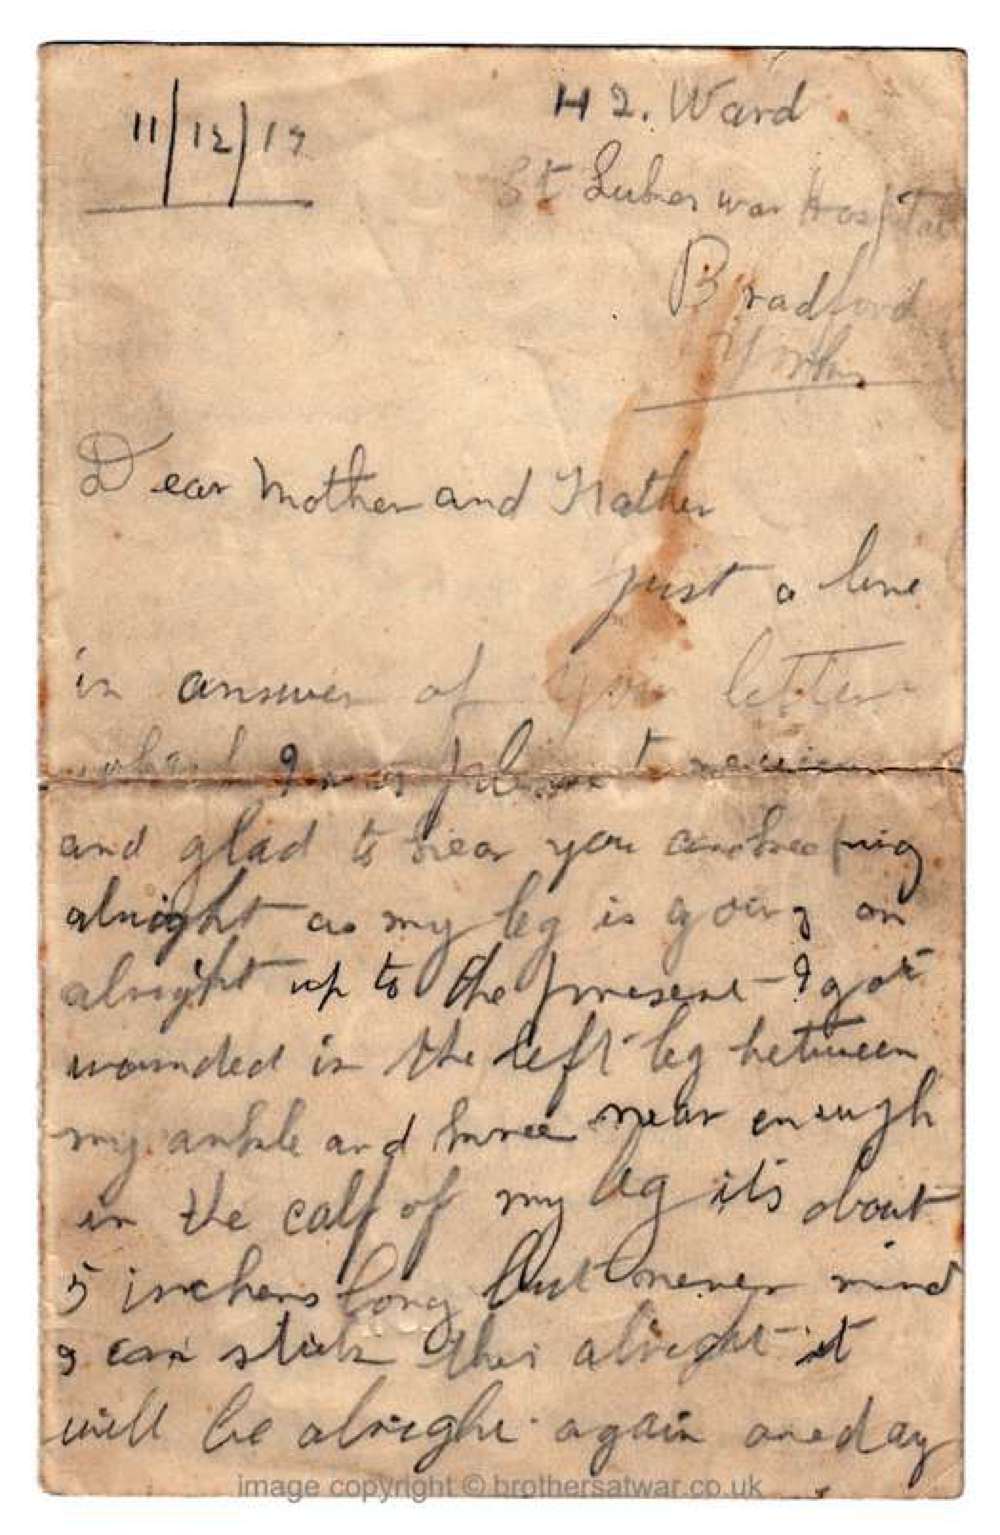 11/12/17
H 2. Ward
St Lukes war Hospital
Bradford
Yorks
Dear Mother and Father
just a line
in answer of you letter
which I was pleased to
and glad to hear you are keeping
alright as my leg is going on
alright up to the present I got
wounded in the left leg between
my ankle and knee near enough
in the calf of my leg its about
5 inchens long but never mind
I can stick this alright it
will be alright again one day
image copyright © brothersatwar.co.uk